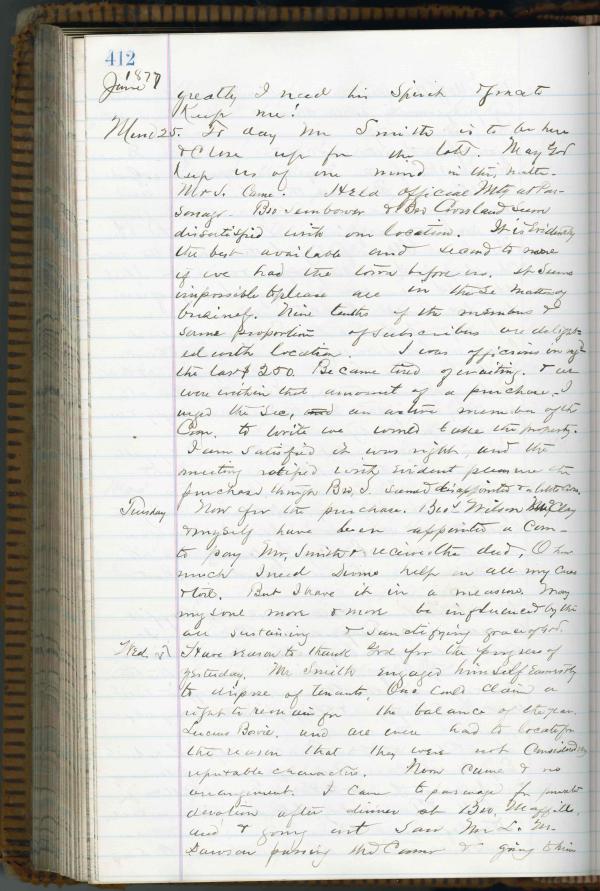 412
June 1877
greatly I need his Spirit & grace to
Keep me!
Mon 25. To day Mr Smith is to be here
& Close up for the lot. May God
Keep us of one mind in this matter.
Mr S. Came. Held official Mtg at Par-
sonage. Bro Sembower & Bro Crossland seem
dissatisfied with our location. It is Evidently
the best available and second to none
if we had the town before us. It seems
impossible to please all in these matters of
business. Nine tenths of the members &
same proportion of subscribers are delight-
ed with location. I was officious in
the last $250. Became tired of waiting. & we
were within that amount of a purchase. I
urged the Sec, and an active member of the
Com. to write we would take the property.
I am satisfied it was right, and the
meeting ratified with evident pleasure the
purchase though Bro. S. seemed disappointed & a little
Tuesday Now for the purchase. Bros Wilson McClay
& myself have been appointed a Com-
to pay Mr. Smith & receive the deed. O how
much I need Divine help in all my Cares
& toil. But I have it in a measure. May
my soul more & more be influenced by the
all sustaining & Sanctifying grace of God.
Wed. 27 Have reason to thank God for the progress of
yesterday. Mr Smith engaged himself Earnestly
to dispose of tenants. One could claim a
right to remain for the balance of the year.
Lucius Bowie. and all were hard to locate for
the reason that they were not Considered
reputable characters. Noon came & no
arrangement. I came to parsonage for private
devotion after dinner at Bro. Magill,
and & going out saw Mr L. M.
Dawson passing the Corner & going to him